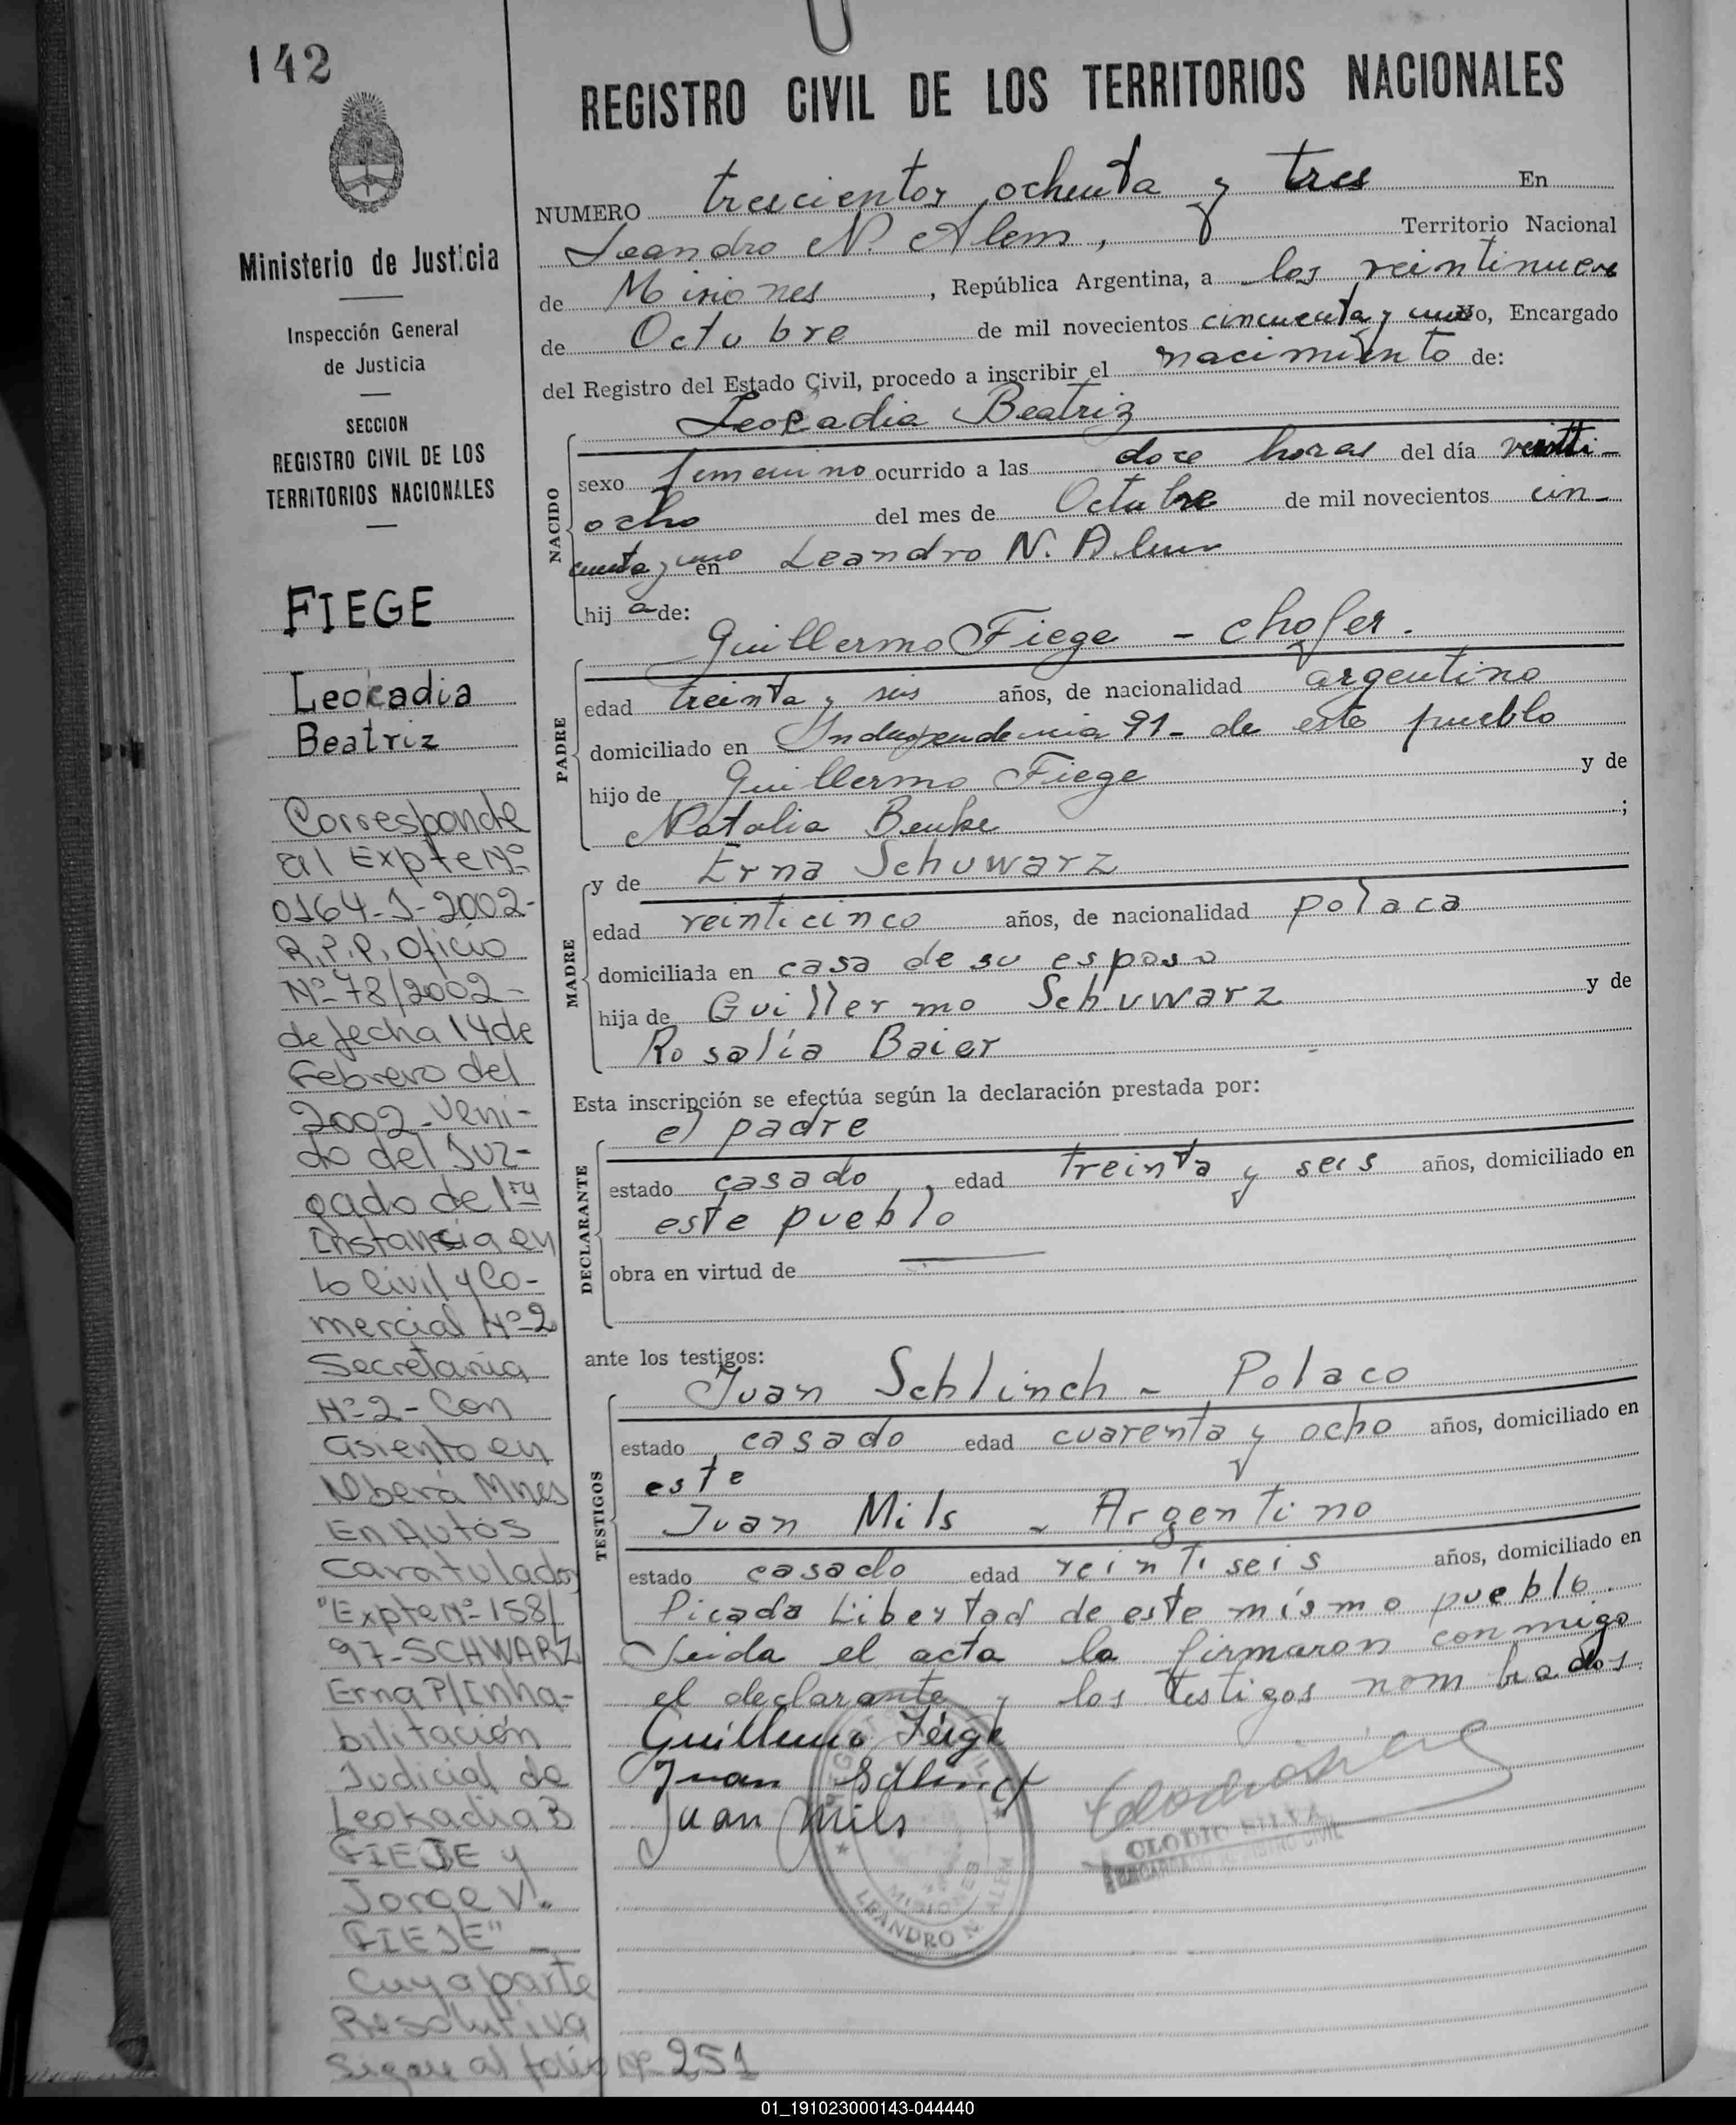 142
Ministerio de Justicia
Inspección General
de Justicia
SECCION
REGISTRO CIVIL DE LOS
TERRITORIOS NACIONALES
FIEGE
Leocadia
Beatriz
Corresponde
al Expte Nº
0164-1-2002-
R.P.P. Oficio
Nº 78/2002-
de fecha 14 de
Febrero del
2002- Veni-
do del Juz-
gado de 1ra
Instancia en
Lo Civil y Co-
mercial Nº 2
Secretaria
Nº 2 - Con
asiento en
Oberá Mnes
En Autos
Caratulados
"Expte Nº 158/
97-SCHWARZ
Erna P/Inha-
bilitación
Judicial de
Leokadia B
FIEJE y
Jorge V.
FIEJE" -
Cuya parte
Resolutiva
Sigue al folio Nº 251
REGISTRO CIVIL DE LOS TERRITORIOS NACIONALES
NUMERO trescientos ochenta y tres En
Leandro N. Alem, Territorio Nacional
de Misiones, República Argentina, a los veintinueve
de Octubre de mil novecientos cincuenta y uno, Encargado
del Registro del Estado Civil, procedo a inscribir el nacimiento de:
Leocadia Beatriz
NACIDO
sexo femenino ocurrido a las doce horas del día veinti-
ocho del mes de Octubre de mil novecientos cin-
cuenta y uno en Leandro N. Alem
hij a de:
Guillermo Fiege - chofer.
PADRE
edad treinta y seis años, de nacionalidad argentino
domiciliado en Independencia 91- de este pueblo
hijo de Guillermo Fiege y de
Natalia Benke ;
y de Erna Schuwarz
MADRE
edad veinticinco años, de nacionalidad polaca
domiciliada en casa de su esposo
hija de Guillermo Schuwarz y de
Rosalía Baier
Esta inscripción se efectúa según la declaración prestada por:
el padre
DECLARANTE
estado casado, edad treinta y seis años, domiciliado en
este pueblo
obra en virtud de
ante los testigos:
Juan Schlinch - Polaco
TESTIGOS
estado casado edad cuarenta y ocho años, domiciliado en
este
Juan Mils - Argentino
estado casado edad veintiseis años, domiciliado en
Picada Libertad de este mismo pueblo.
Leida el acta la firmaron conmigo
el declarante y los testigos nombrados.
Guillermo Feige
Juan
Juan Mils
CLODIO SILVA
ENCARGADO REGISTRO CIVIL
MISIONES
LEANDRO N. ALEM
01_191023000143-044440